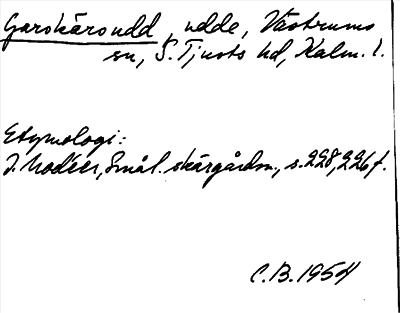 Garskärsudd, udde, Västrums
sn, S. Tjusts hd, Kalm. l.
Etymologi:
I. Modéer, Smål. skärgårdsn., s. 228, 226 f.
C.B. 1954